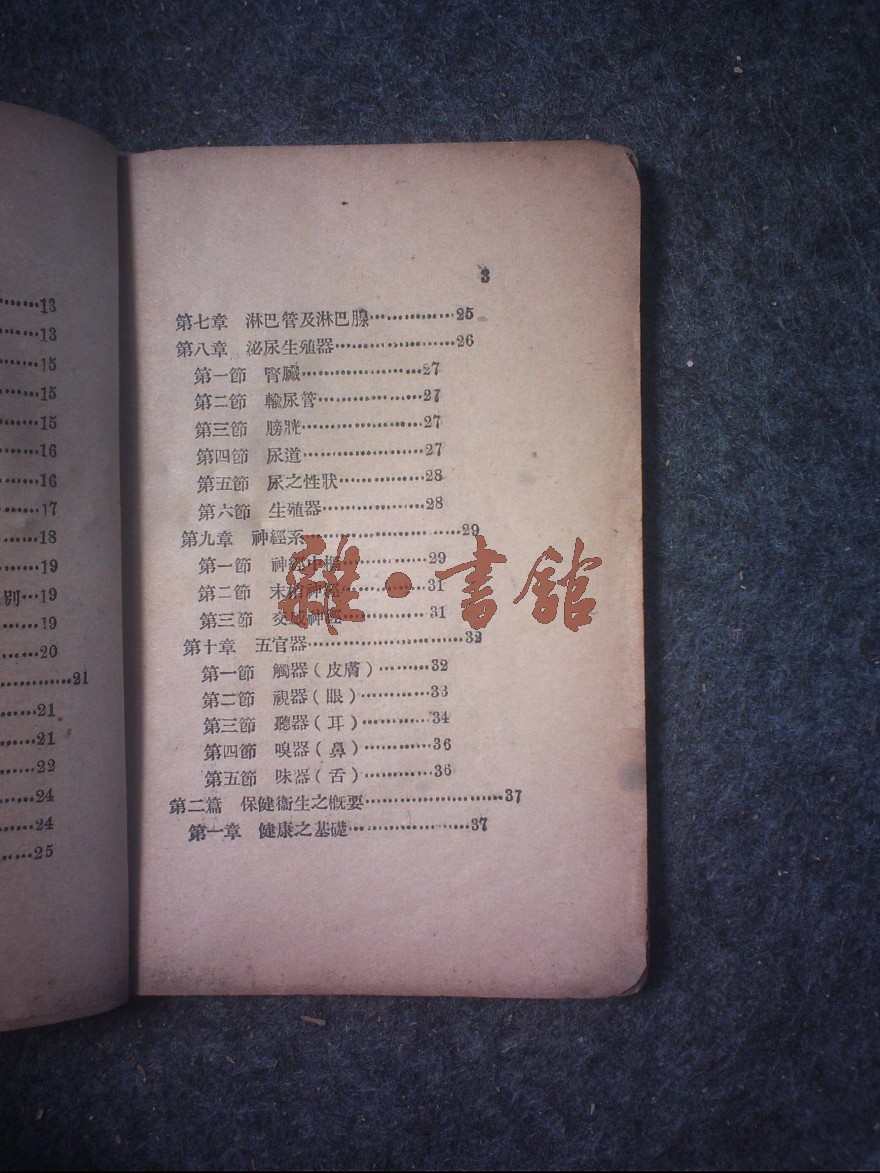 13
13
15
15
15
16
16
17
18
19
別…19
19
20
21
21
21
22
24
24
25
3
第七章 淋巴管及淋巴腺……………25
第八章 泌尿生殖器…………………26
第一節 腎臟…………………27
第二節 輸尿管………………27
第三節 膀胱…………………27
第四節 尿道…………………27
第五節 尿之性狀……………28
第六節 生殖器………………28
第九章 神經系………………………29
第一節 神經中樞……………29
第二節 末梢神經……………31
第三節 交感神經……………31
第十章 五官器………………………32
第一節 觸器(皮膚)………32
第二節 視器(眼)…………33
第三節 聽器(耳)…………34
第四節 嗅器(鼻)…………36
第五節 味器(舌)…………36
第二篇 保健衞生之槪要……………………37
第一章 健康之基礎…………………37
雜·書館